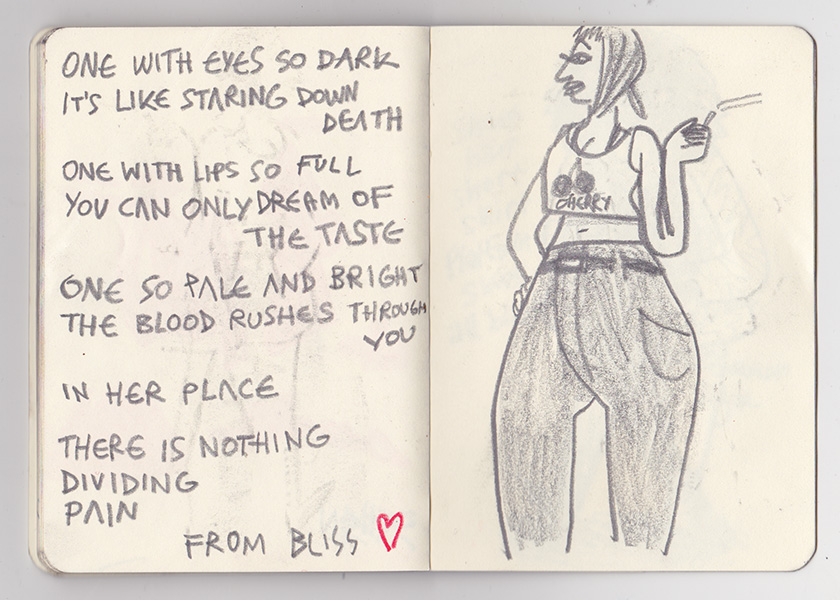 ONE WITH EYES SO DARK
IT'S LIKE STARING DOWN
DEATH
ONE WITH LIPS SO FULL
YOU CAN ONLY DREAM OF
THE TASTE
ONE SO PALE AND BRIGHT
THE BLOOD RUSHES THROUGH
YOU
IN HER PLACE
THERE IS NOTHING
DIVIDING
PAIN
FROM BLISS
CHERRY